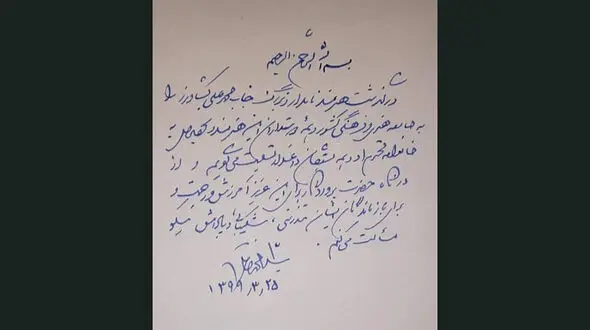 بسم الله الرحمن الرحیم
درگذشت هنرمند نامدار و بزرگ جناب محمدعلی کشاورز را
به جامعه هنری و فرهنگی کشور و همه دوستداران این هنرمند و به
خانواده محترم او و همه تسلیت می‌گویم و از
درگاه حضرت پروردگار برای این عزیز آمرزش و رحمت و
برای بازماندگان ایشان تندرستی، شکیبائی و پاداش نیکو
مسألت می‌کنم.
۱۳۹۹،۳،۲۵